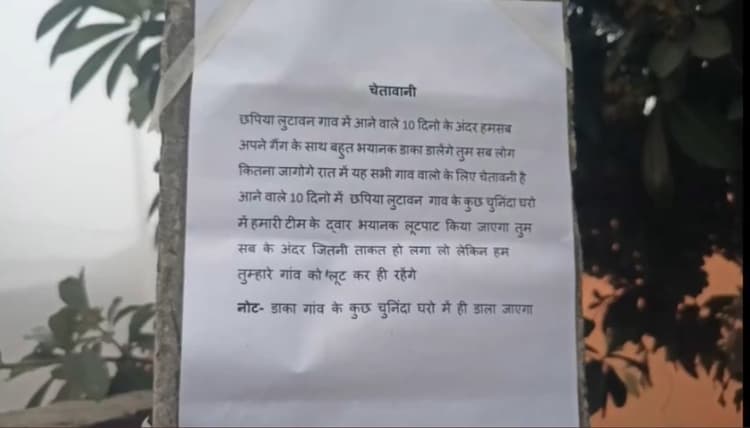 चेतावनी
छपिया लुटावन गाव में आने वाले 10 दिनो के अंदर हमसब
अपने गैंग के साथ बहुत भयानक डाका डालेंगे तुम सब लोग
कितना जागोगे रात में यह सभी गाव वालो के लिए चेतावनी है
आने वाले 10 दिनो में छपिया लुटावन गाव के कुछ चुनिंदा घरो
में हमारी टीम के द्वार भयानक लूटपाट किया जाएगा तुम
सब के अंदर जितनी ताकत हो लगा लो लेकिन हम
तुम्हारे गांव को लूट कर ही रहेंगे
नोट- डाका गांव के कुछ चुनिंदा घरो में ही डाला जाएगा